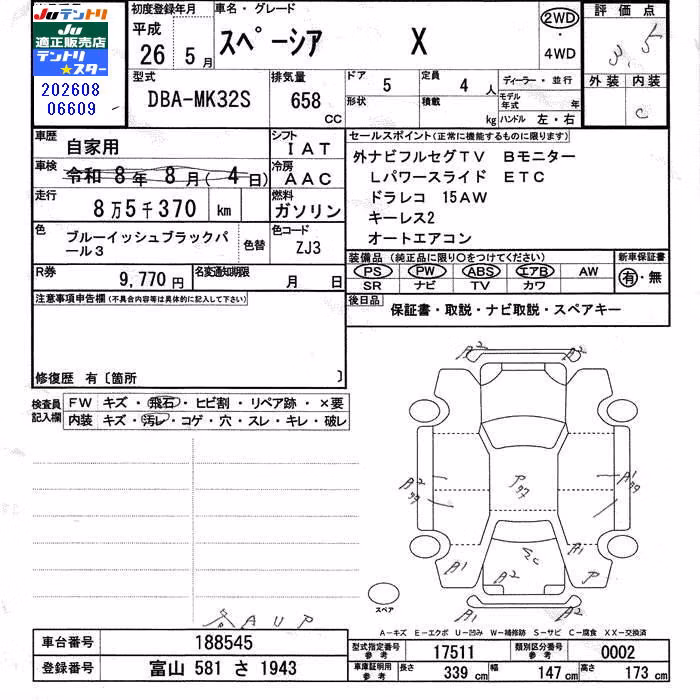 JUテントリ
JU
適正販売店
テントリ
★スター
202608
06609
初度登録年月
平成
26 5 月
車名・グレード
スペーシア X
2WD
・
4WD
評価点
3.5
外装 内装
C
型式
DBA-MK32S
排気量
658
CC
ドア
5
形状
定員
4 人
積載
kg
ディーラー・並行
モデル年式 年
ハンドル 左・右
車歴
自家用
シフト
IAT
車検
令和 8年 8月( 4日)
冷房
AAC
走行
8万5千370 km
燃料
ガソリン
色
ブルーイッシュブラックパール3
色替
色コード
ZJ3
R券
9,770 円
名変通知期限
月 日
セールスポイント(正常に機能するものに限ります)
外ナビフルセグTV Bモニター
Lパワースライド ETC
ドラレコ 15AW
キーレス2
オートエアコン
装備品 (純正品に限り○をつけてください)
PS PW ABS エアB AW
SR ナビ TV カワ
新車保証書
有・無
後日品
保証書・取説・ナビ取説・スペアキー
注意事項申告欄(不具合内容等は具体的に記入して下さい)
修復歴 有〔箇所 〕
検査員記入欄
FW キズ・飛石・ヒビ割・リペア跡・×要
内装 キズ・汚レ・コゲ・穴・スレ・キレ・破レ
A2 A2
A2
99
P
99
A1
99
A1
A2
A1
P
A1
A2
スペア
AUP
A-キズ E-エクボ U-凹み W-補修跡 S-サビ C-腐食 XX-交換済
車台番号
188545
登録番号
富山 581 さ 1943
型式指定番号
参考
17511
類別区分番号
参考
0002
車庫証明用
参考
長さ 339 cm 幅 147 cm 高さ 173 cm